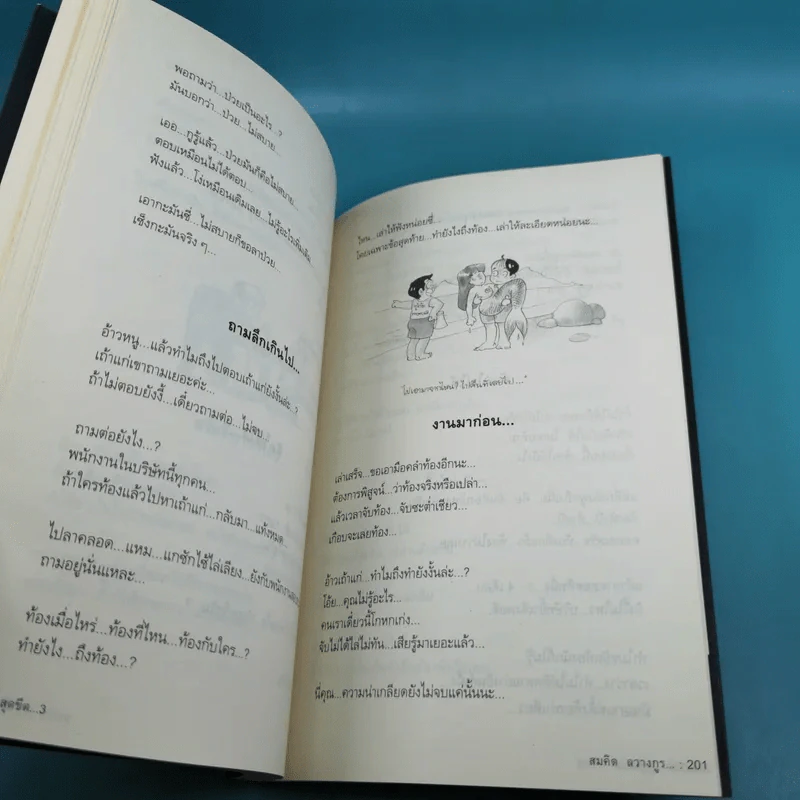 พอถามว่า...ป่วยเป็นอะไร...?
มันบอกว่า...ป่วย...ไม่สบาย...
เออ...กูรู้แล้ว...ป่วยมันก็คือไม่สบาย...
ตอบเหมือนไม่ได้ตอบ...
ฟังแล้ว...โง่เหมือนเดิมเลย...ไม่รู้อะไรเพิ่มเติม
เอากะมันซี่...ไม่สบายก็ขอลาป่วย...
เซ็งกะมันจริง ๆ...
ถามลึกเกินไป...
อ้าวหนู...แล้วทำไมถึงไปตอบเถ้าแก่ยังงั้นล่ะ...?
เถ้าแก่เขาถามเยอะค่ะ...
ถ้าไม่ตอบยังงี้...เดี๋ยวถามต่อ...ไม่จบ...
ถามต่อยังไง...?
พนักงานในบริษัทนี้ทุกคน...
ถ้าใครท้องแล้วไปหาเถ้าแก่...กลับมา...แท้งหมด...
ไปลาคลอด...แหม...แกซักไซ้ไล่เลียง...ยังกับพนักงาน
ถามอยู่นั่นแหละ...
ท้องเมื่อไหร่...ท้องที่ไหน...ท้องกับใคร...?
ทำยังไง...ถึงท้อง...?
สุดขีด...3
ไหน...เล่าให้ฟังหน่อยซี่...
โดยเฉพาะข้อสุดท้าย...ทำยังไงถึงท้อง...เล่าให้ละเอียดหน่อยนะ...
งานมาก่อน...
เล่าเสร็จ...ขอเอามือคลำท้องอีกนะ...
ต้องการพิสูจน์...ว่าท้องจริงหรือเปล่า...
แล้วเวลาจับท้อง...จับซะต่ำเชียว...
เกือบจะเลยท้อง...
อ้าวเถ้าแก่...ทำไมถึงทำยังงั้นล่ะ...?
โอ้ย...คุณไม่รู้อะไร...
คนเราเดี๋ยวนี้โกหกเก่ง...
จับไม่ได้ไล่ไม่ทัน...เสียรู้มาเยอะแล้ว...
นี่คุณ...ความน่าเกลียดยังไม่จบแค่นั้นนะ...
สมคิด ลวางกูร... : 201